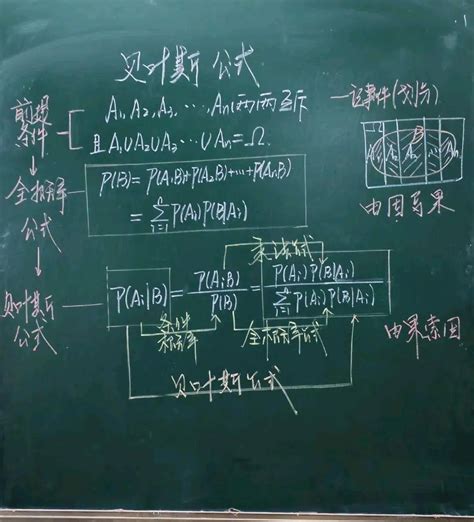 贝叶斯公式
前提条件
A₁, A₂, A₃, ⋯, Aₙ(两两)互斥
且 A₁∪A₂∪A₃⋯∪Aₙ=Ω.
一定事件(划分)
Ω
B
A₁ A₂ ⋯ Aₙ
由因导果
全概率公式
P(B)=P(A₁B)+P(A₂B)+⋯+P(AₙB)
=∑ⁿᵢ₌₁P(Aᵢ)P(B|Aᵢ)
乘法公式
贝叶斯公式
P(Aᵢ|B)=P(AᵢB)/P(B)=P(Aᵢ)P(B|Aᵢ)/∑ⁿᵢ₌₁P(Aᵢ)P(B|Aᵢ)
条件概率
全概率公式
由果索因
贝叶斯公式